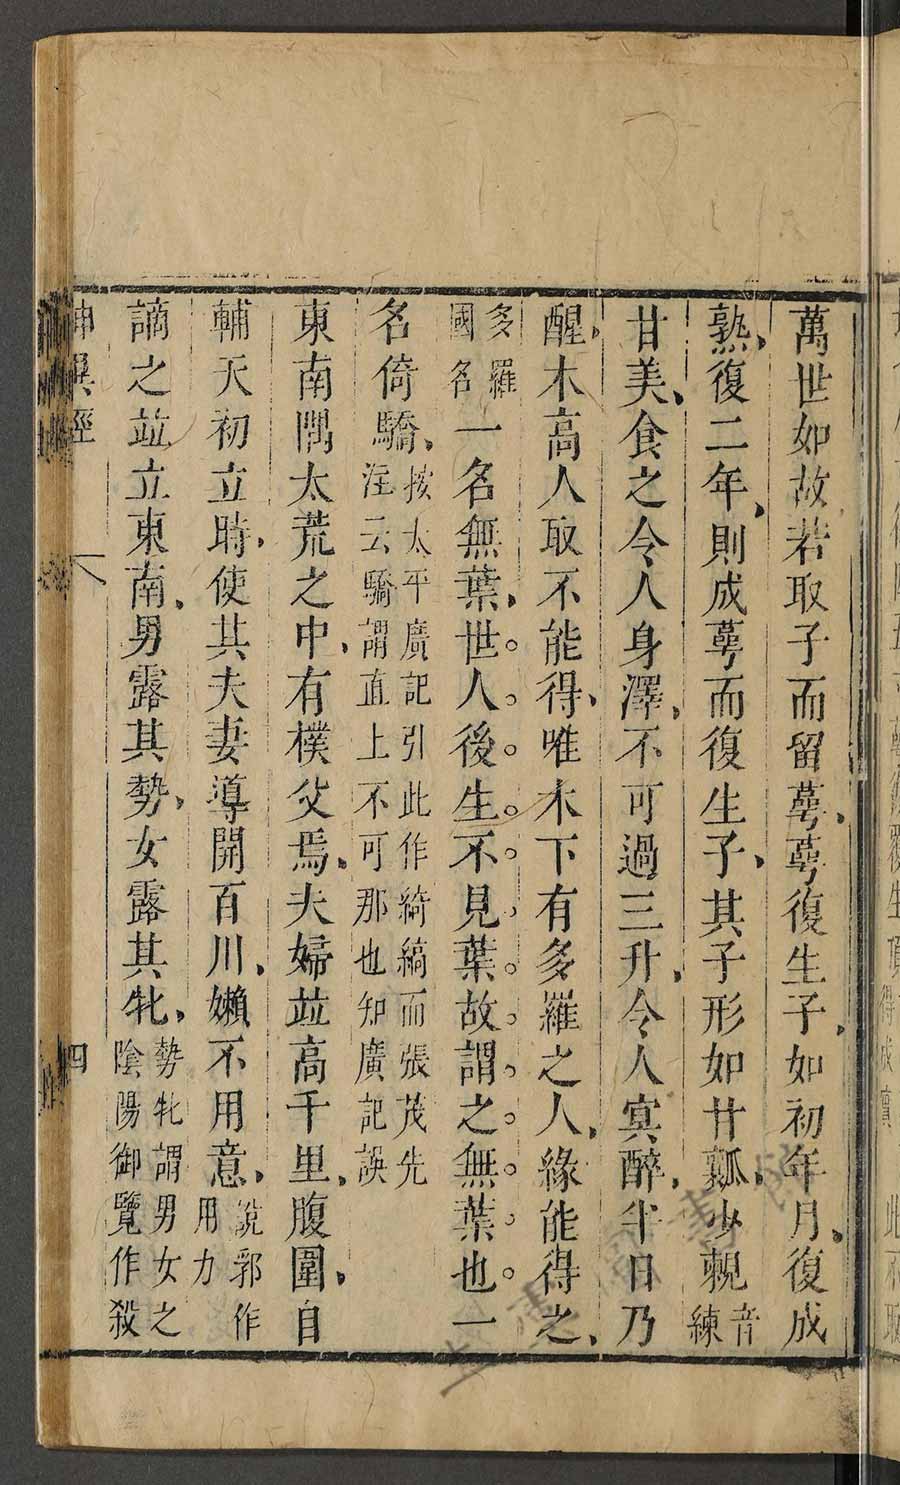 萬世如故若取子而留萼萼復生子如初年月復成
熟復二年則成萼而復生子其子形如甘瓢少䙺音練
甘美食之令人身澤不可過三升令人㝠醉半日乃
醒木高人取不能得唯木下有多羅之人緣能得之
多羅國名一名無葉世人後生不見葉故謂之無葉也一
名倚驕按太平廣記引此作綺縞而張茂先注云驕謂直上不可那也知廣記誤
東南隅太荒之中有樸父焉夫婦竝高千里腹圍自
輔天初立時使其夫妻導開百川嬾不用意說郛作用力
謫之竝立東南男露其勢女露其牝勢牝謂男女之陰陽御覽作殺
神異經
四